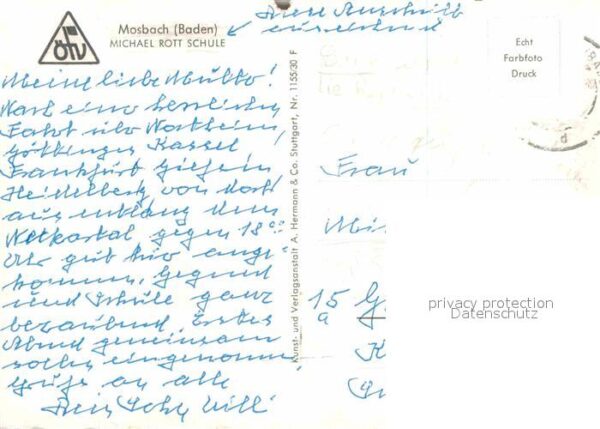 ötv
Mosbach (Baden)
MICHAEL ROTT SCHULE
Diese Anschrift
ausreichend
Echt
Farbfoto
Druck
Meine liebe Mutti!
Nach einer herrlichen
Fahrt über Northeim,
Göttingen, Kassel,
Frankfurt, Gießen,
Heidelberg von dort
aus entlang dem
Neckartal gegen 18
Uhr gut hier ange-
kommen. Gegend
und Schule ganz
bezaubernd. Erstes
Abend gemeinsam
eingenommen
Grüße an alle
Dein Sohn Willi
Kunst- und Verlagsanstalt A. Hermann & Co. Stuttgart, Nr. 115530 F
Frau
15
a
privacy protection
Datenschutz